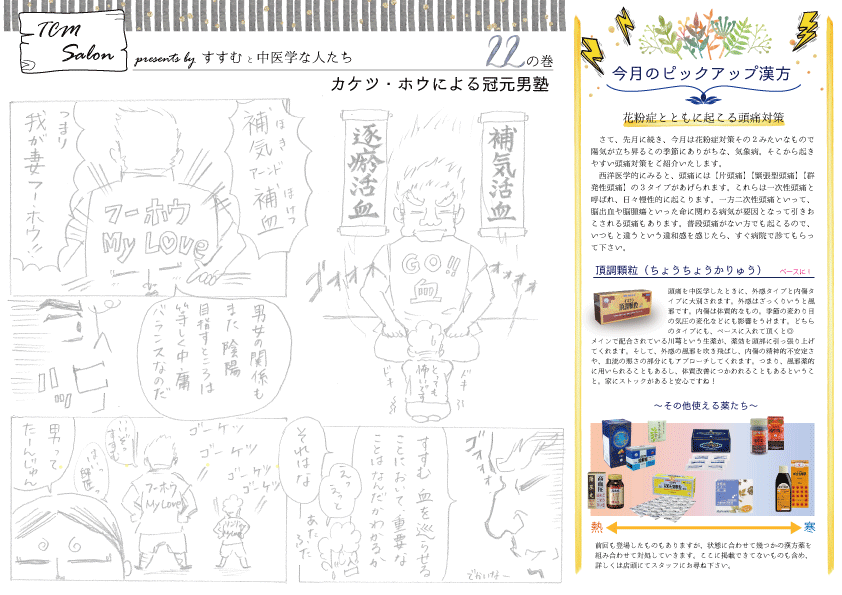 TCM
Salon
presents by すすむと中医学な人たち
22の巻
カケツ・ホウによる冠元男塾
補気
逐瘀活血
補気活血
GO!!
血
ゴオオオ
オオオオ
ドキ
ドキ
とっても
怖いです
それはな
すすむ、血を巡らせる
ことにおいて重要な
ことはなんだかわかるか
ゴオオオ
でかいなー
つまり
我が妻フーホウ!!
補気アンド補血
フーホウ
My Love
男女の関係も
また陰陽
目指すところは
等しく中庸
バランスなのだ
ゴーケツ
ゴーケツ
ゴーケツ
ゴーケツ
フーホウ
My Love
男って
たーんじゅん
今月のピックアップ漢方
花粉症とともに起こる頭痛対策
さて、先月に続き、今月は花粉症対策その２みたいなもので
陽気が立ち昇るこの季節にありがちな、気象病。そこから起き
やすい頭痛対策をご紹介いたします。
西洋医学的にみると、頭痛には【片頭痛】【緊張型頭痛】【群
発性頭痛】の３タイプがあげられます。これらは一次性頭痛と
呼ばれ、日々慢性的に起こります。一方二次性頭痛といって、
脳出血や脳腫瘍といった命に関わる病気が要因となって引きお
こされる頭痛もあります。普段頭痛がない方でも起こるので、
いつもと違うという違和感を感じたら、すぐ病院で診てもらっ
て下さい。
頂調顆粒（ちょうちょうかりゅう）
ベースに！
頭痛を中医学したときに、外感タイプと内傷タ
イプに大別されます。外感はざっくりいうと風
邪です。内傷は体質的なもの。季節の変わり目
の気圧の変化などにも影響をうけます。どちら
のタイプにも、ベースに入れて頂くと◎
メインで配合されている川芎という生薬が、薬効を頭部に引っ張り上げ
てくれます。そして、外感の風邪を吹き飛ばし、内傷の精神的不安定さ
や、血流の悪さの部分にもアプローチしてくれます。つまり、風邪薬的
に用いられることもあるし、体質改善につかわれることもあるというこ
と。家にストックがあると安心ですね！
～その他使える薬たち～
熱
寒
前回も登場したものもありますが、状態に合わせて幾つかの漢方薬を
組み合わせて対処していきます。ここに掲載できてないものも含め、
詳しくは店頭にてスタッフにお尋ね下さい。